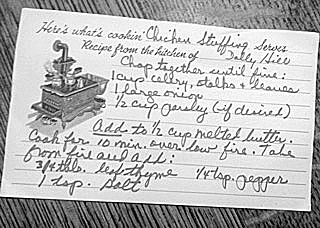 Here's what's cookin' Chicken Stuffing Serves
Recipe from the kitchen of Dolly Hill
Chop together until fine:
1 cup celery, stalks & leaves
1 large onion
1/2 cup parsley (if desired)
Add to 1/2 cup melted butter.
Cook for 10 min. over low fire. Take
from fire and add:
3/4 tsp. leaf thyme 1/4 tsp. pepper
1 tsp. salt